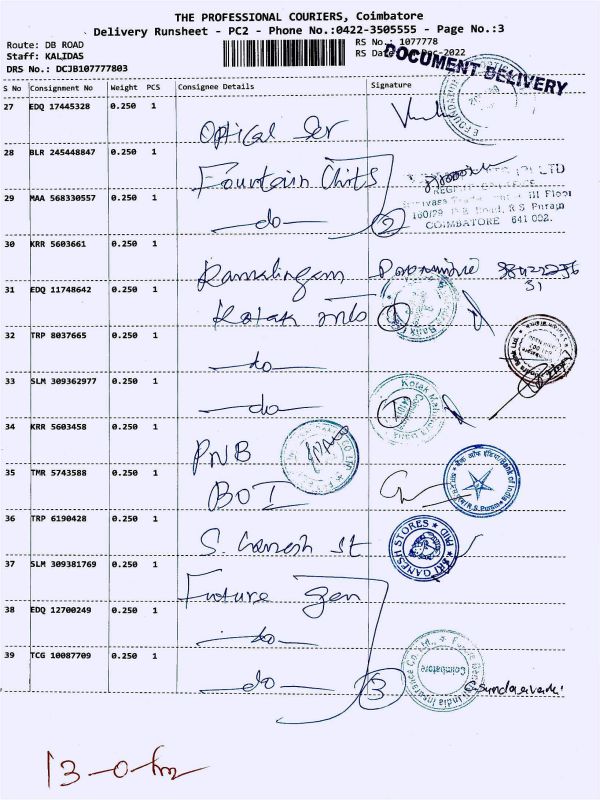 THE PROFESSIONAL COURIERS, Coimbatore
Delivery Runsheet - PC2 - Phone No.:0422-3505555 - Page No.:3
Route: DB ROAD RS No.: 1077778
Staff: KALIDAS RS Date: Dec-2022
DRS No.: DCJB107777803
DOCUMENT DELIVERY
S No Consignment No Weight PCS Consignee Details Signature
27 EDQ 17445328 0.250 1
Optical
28 BLR 245448847 0.250 1
Fountain Chits
29 MAA 568330557 0.250 1
do 2
III Floor
160/29 Road, R.S Puram
COIMBATORE 641 002.
30 KRR 5603661 0.250 1
Ramalingam
31 EDQ 11748642 0.250 1
Kotak
32 TRP 8037665 0.250 1
do
33 SLM 309362977 0.250 1
do
Kotak
34 KRR 5603458 0.250 1
PNB
35 TMR 5743588 0.250 1
BOI
36 TRP 6190428 0.250 1
S. Ganesh St
SRI GANESH STORES
37 SLM 309381769 0.250 1
Future Gen
38 EDQ 12700249 0.250 1
do
39 TCG 10087709 0.250 1
do 3
India Insurance Co. Ltd.
Coimbatore